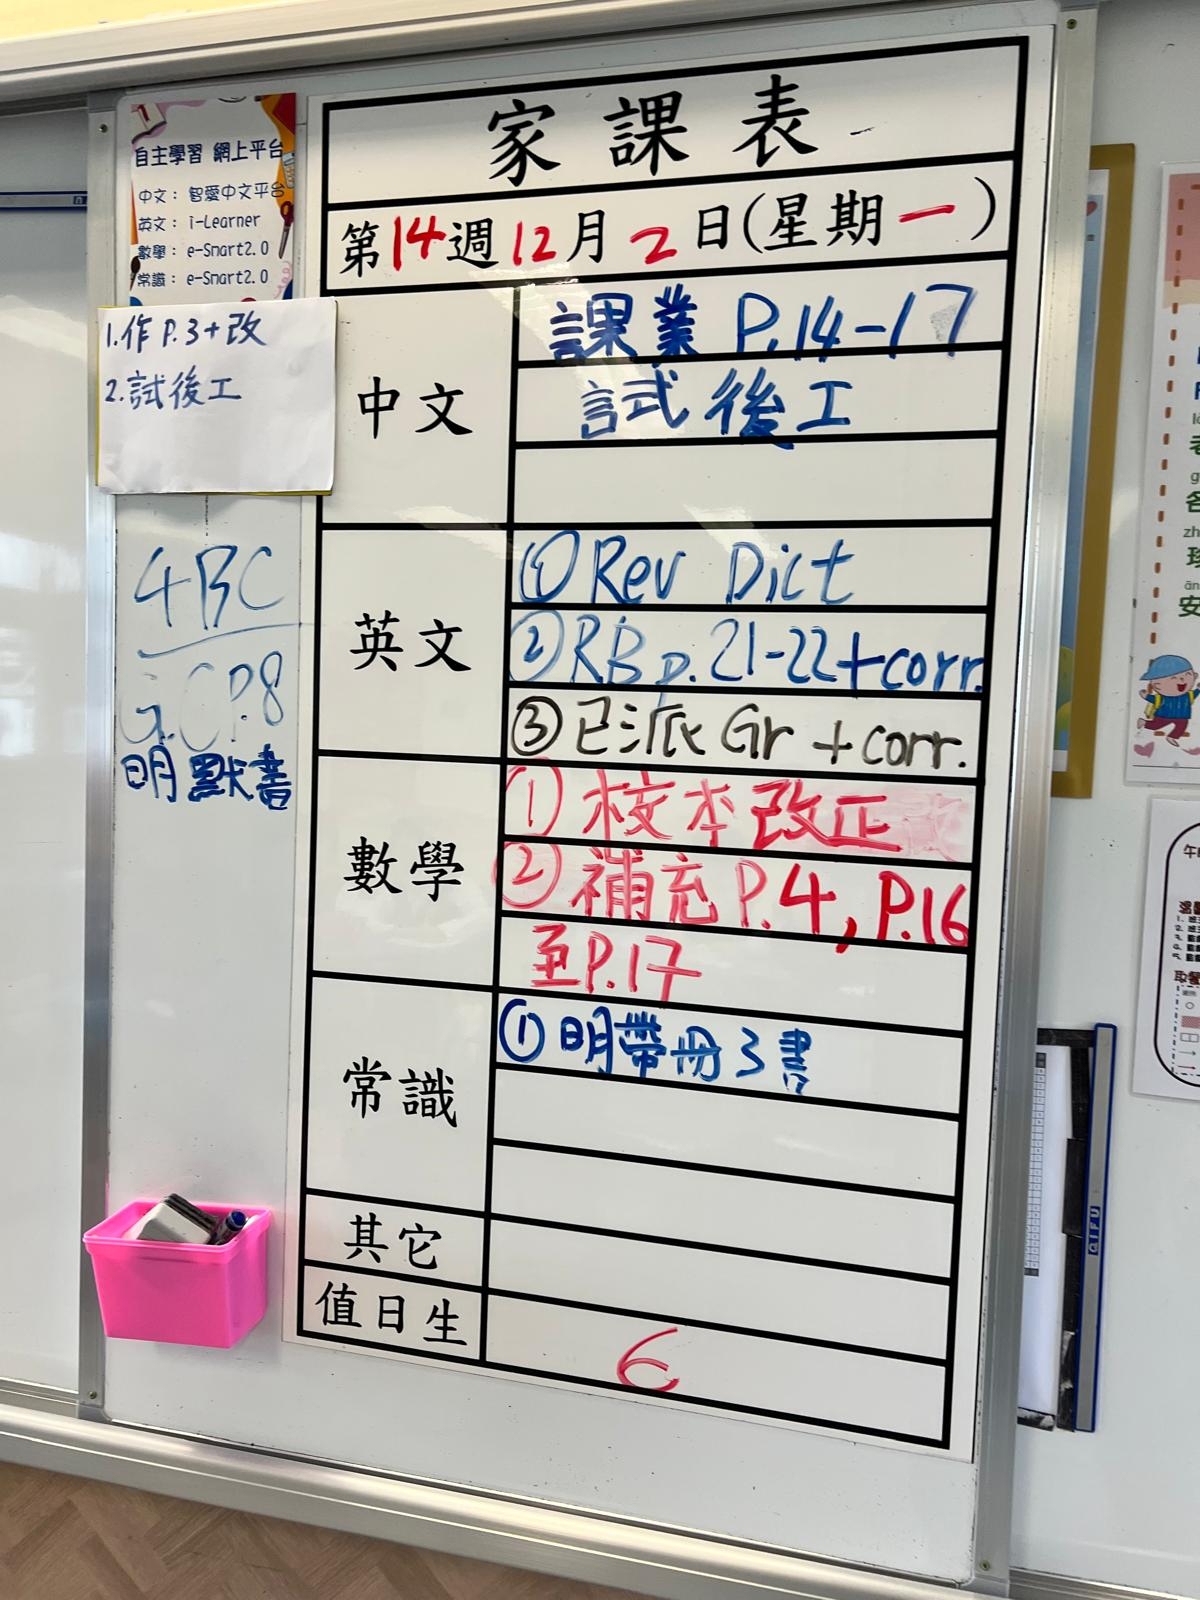 家課表
第14週12月2日(星期一)
中文
課業 P.14-17
試後工
英文
① Rev Dict
② RB p.21-22+corr.
③ 已派 Gr + corr.
數學
① 校本改正
② 補充 P.4, P.16
至P.17
常識
① 明帶冊3書
其它
值日生
6
自主學習 網上平台
中文： 智愛中文平台
英文： i-Learner
數學： e-Smart2.0
常識： e-Smart2.0
1.作 P.3+改
2.試後工
4BC
P.8
明默書